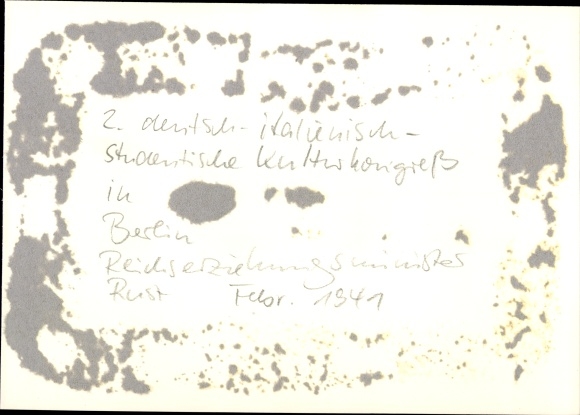 2. deutsch-italienisch-
studentische Kulturkongreß
in
Berlin
Reichserziehungsminister
Rust Febr. 1941